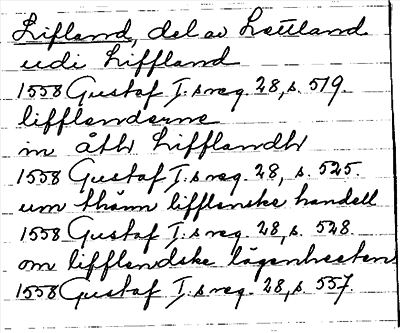 Lifland, del av Lettland.
udi Liffland
1558 Gustaf I:s reg. 28, s. 519.
lifflenderne
in åthr Lifflandhr
1558 Gustaf I:s reg. 28, s. 525.
um thänn lifflenske handell
1558 Gustaf I:s reg. 28, s. 528.
om lifflendske lägenheeten
1558 Gustaf I:s reg. 28, s. 557.